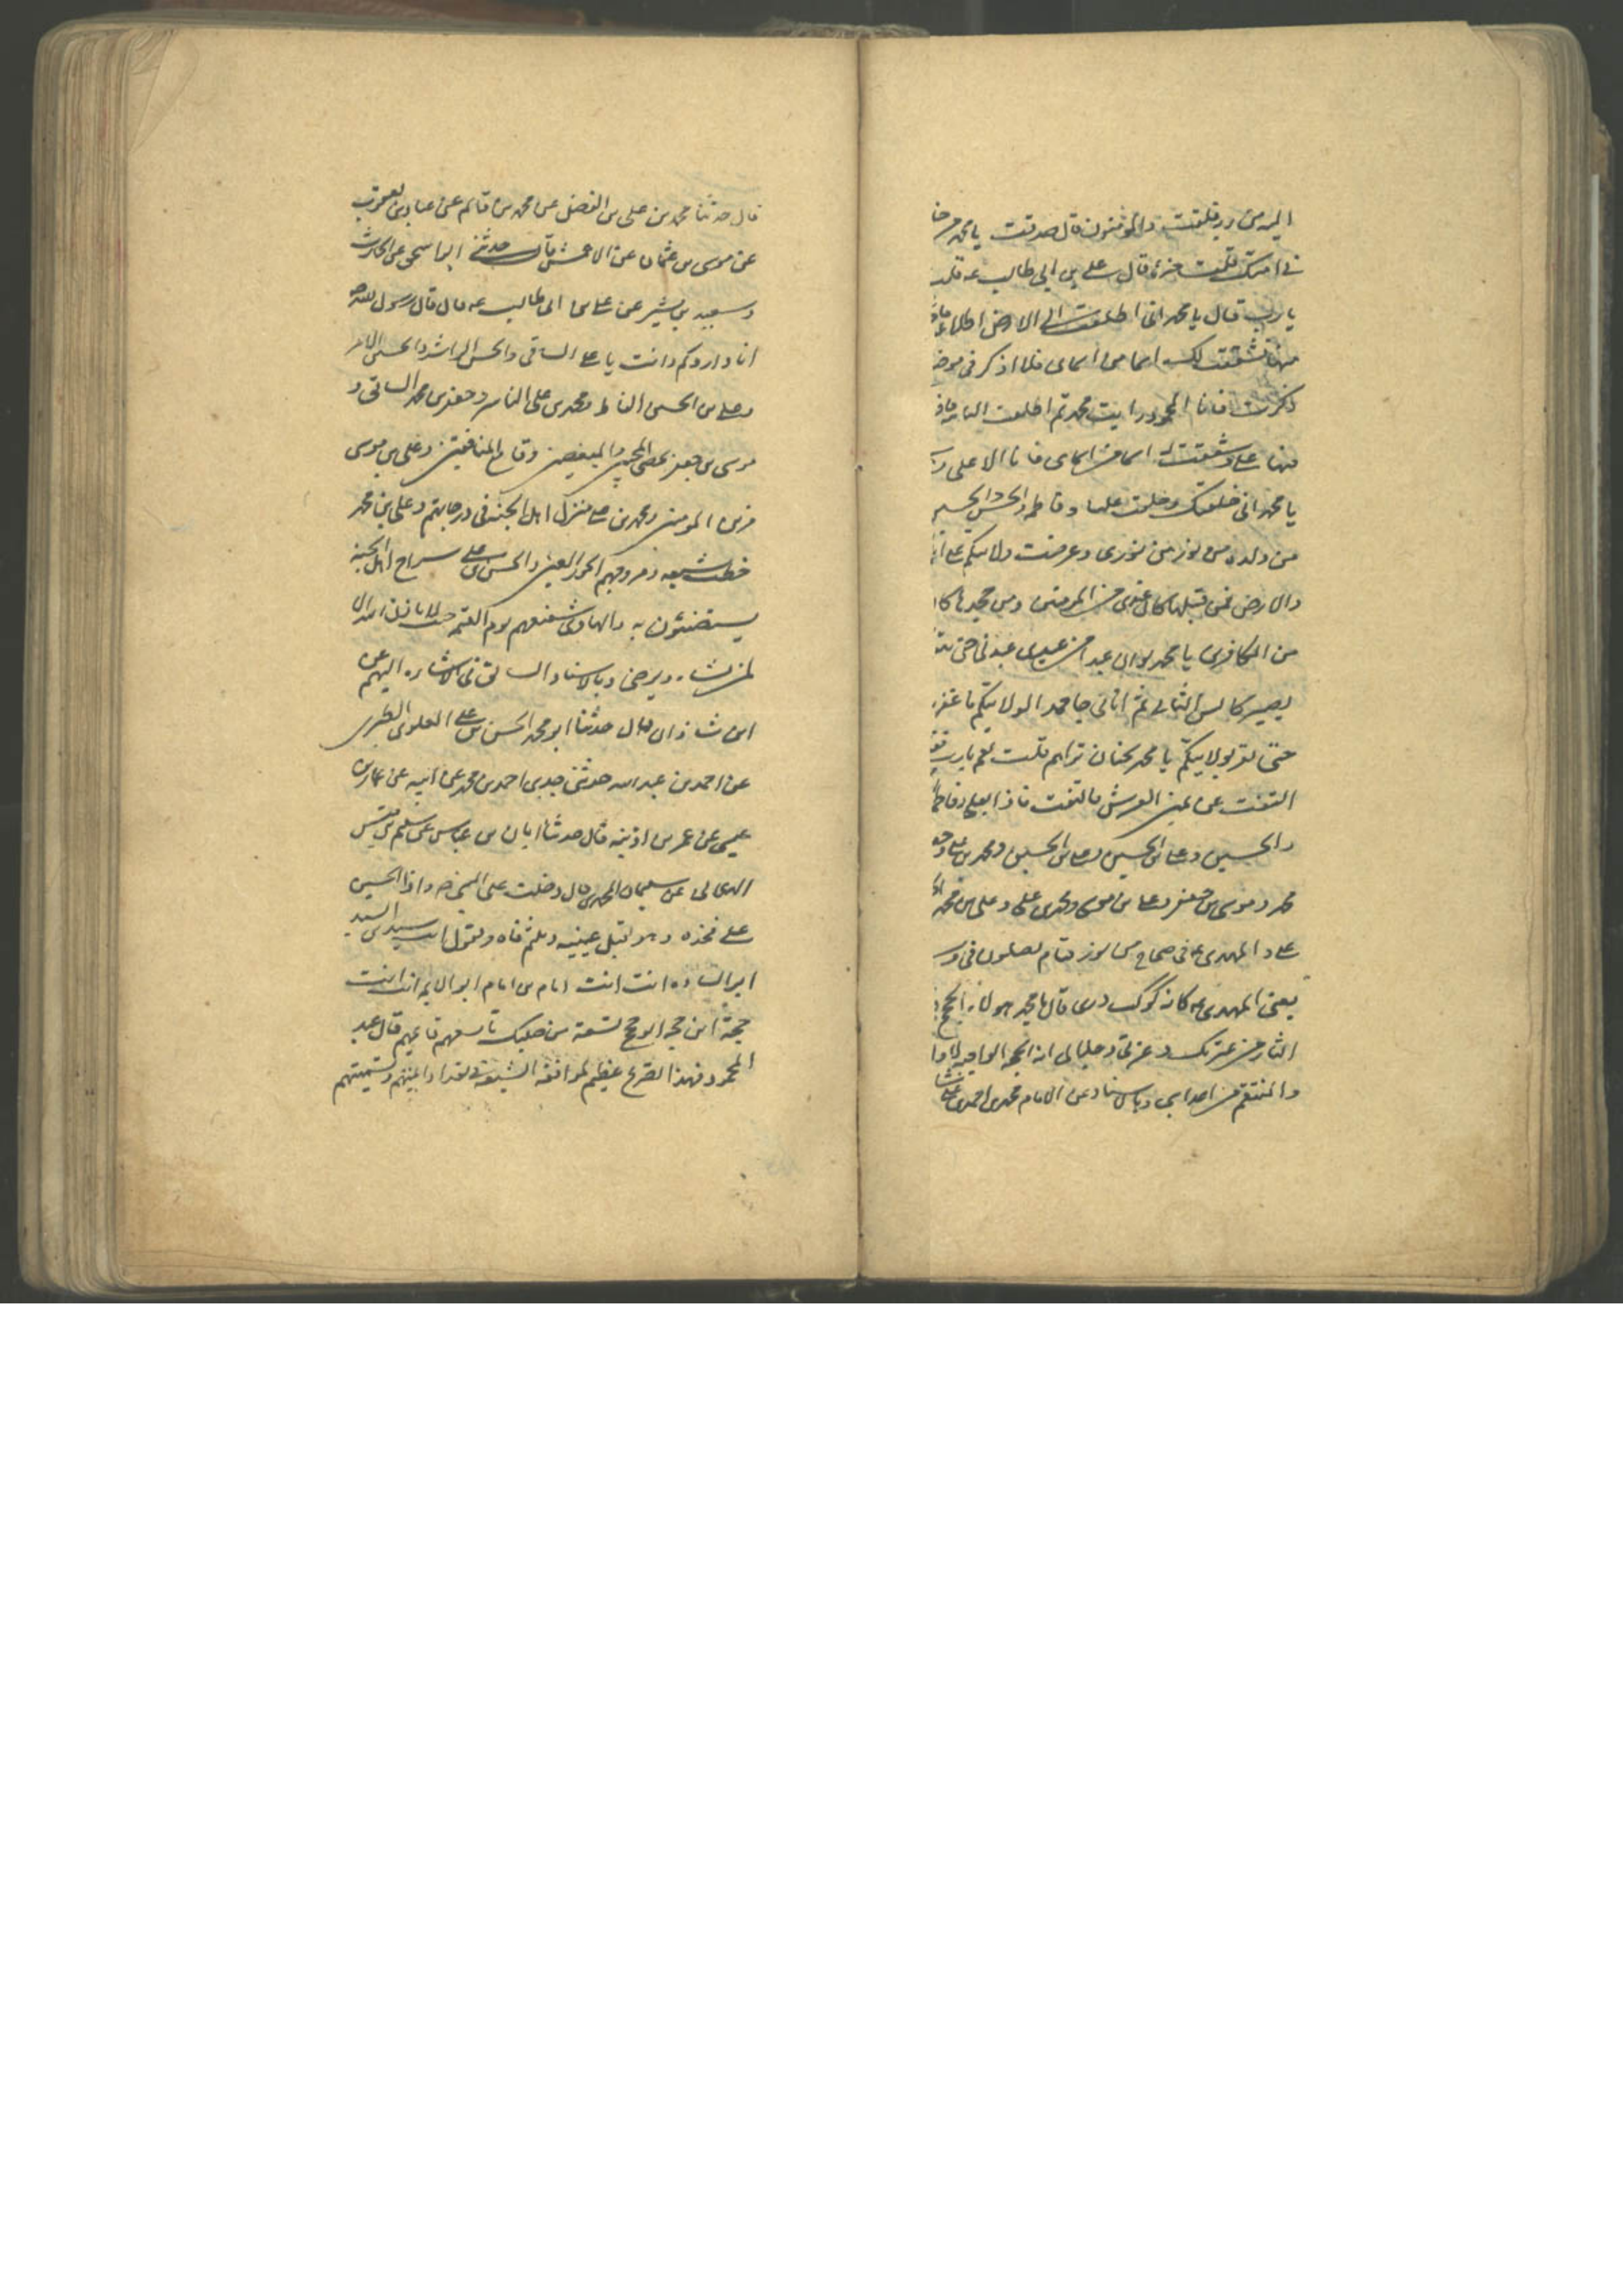 اليه من ربه فقلت والمؤمنون قال صدقت يا محمد من خلفت
في امتك قلت خيرها قال علي بن ابي طالب عه قلت
يا رب قال يا محمد اني اطلعت الى الارض اطلاعة
منها فشققت لك اسما من اسماى فلا اذكر في موضع
ذكرت فانا المحمود وانت محمد ثم اطلعت الثانية
منها علي وشققت له اسما من اسماى فانا الاعلى
يا محمد اني خلقتك وخلقت عليا وفاطمة والحسن والحسين
من ولده من نور من نورى وعرضت ولايتكم على
والارض فمن قبلها كان عندى من المومنين ومن جحدها كان
من الكافرين يا محمد لو ان عبدا من عبيدى عبدني حتى
يصير كالشن البالي ثم اتاني جاحدا لولايتكم ما غفر
حتى يقر بولايتكم يا محمد تحب ان تراهم قلت نعم يا رب
التفت عن يمين العرش فالتفت فاذا بعلي وفاطمة
والحسين وعلي بن الحسين ومحمد بن علي
محمد وموسى بن جعفر وعلي بن موسى ومحمد بن علي وعلي بن محمد
علي والمهدى عه في ضحضاح من نور قيام يصلون في
يعني المهدى عه كانه كوكب درى قال يا محمد هولاء الحجج
الثار من عترتك وعزتي وجلالي انه الحجة الواجبة
والمنتقم من اعدائي وبالاسناد عن الامام محمد بن احمد بن علي
قال حدثنا محمد بن علي بن الفضل عن محمد بن قاسم عن عباد بن يعقوب
عن موسى بن عثمان عن الاعمش قال حدثني ابو اسحق عن الحارث
وسعيد بن بشير عن علي بن ابي طالب عه قال قال رسول الله صه
انا واردكم وانت يا علي الساقي والحسن الرائد والحسين الامر
وعلي بن الحسين الفارط ومحمد بن علي الناشر وجعفر بن محمد السائق و
موسى بن جعفر محصى المحبين والمبغضين وقامع المنافقين وعلي بن موسى
مزين المومنين ومحمد بن علي منزل اهل الجنة في درجاتهم وعلي بن محمد
خطيب شيعته ومزوجهم الحور العين والحسن بن علي سراج اهل الجنة
يستضيئون به والهادى شفيعهم يوم القيمة حيث لا ياذن الله الا
لمن يشاء ويرضى وبالاسناد السابق في الاشاره اليهم عن
ابن شاذان قال حدثنا ابو محمد الحسن بن علي العلوى الطبرى
عن احمد بن عبد الله حدثني جدى احمد بن محمد عن ابيه عن حماد بن
عيسى عن عمر بن اذينه قال حدثنا ابان بن عياش عن سليم بن قيس
الهلالي عن سليمان المحمدى قال دخلت على النبي صه واذا الحسين
على فخذه وهو يقبل عينيه ويلثم فاه ويقول انت سيد بن السيد
ابو الساده انت انت امام بن امام ابو الايمه انت انت
حجة ابن حجه ابو حجج تسعة من صلبك تاسعهم قايمهم قال عبد
المحمود فهذا تصريح عظيم لموافقة الشيعة في تعداد ائمتهم وتسميتهم